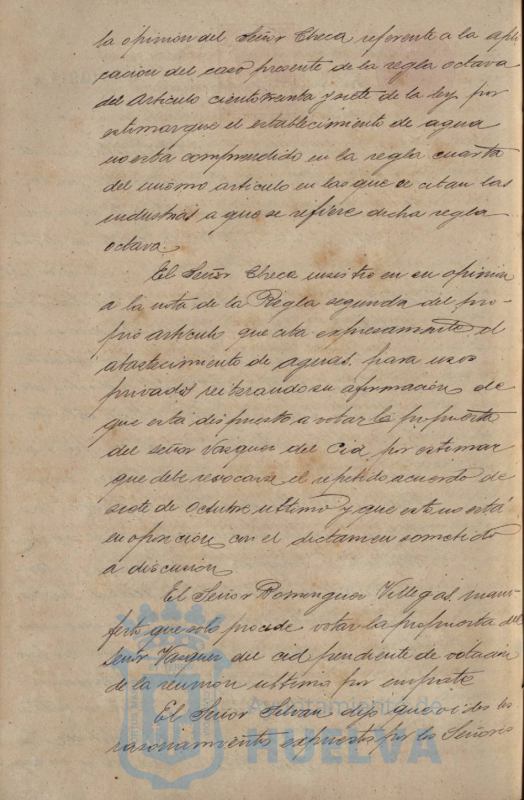 la opinión del Señor Checa referente a la apli
cación del caso presente de la regla octava
del Artículo ciento treinta y siete de la ley por
estimar que el establecimiento de agua
no esta comprendido en la regla cuarta
del mismo artículo en las que se citan las
industrias a que se refiere dicha regla
octava.
El Señor Checa insistió en su opinión
a la vista de la Regla segunda del pro-
pio artículo que cita expresamente el
abastecimiento de aguas para usos
privados reiterando su afirmación de
que está dispuesto a votar la propuesta
del señor Vazquez del Cid por estimar
que debe revocarse el repetido acuerdo de
siete de Octubre ultimo y que este no está
en oposición con el dictamen sometido
a discusión
El Señor Dominguez Villegas mani-
festó que solo procede votar la propuesta del
señor Vazquez del Cid pendiente de votación
de la reunión ultima por empate
El Señor Silván dijo que oidos los
razonamientos expuestos por los Señores
Ayuntamiento de
HUELVA